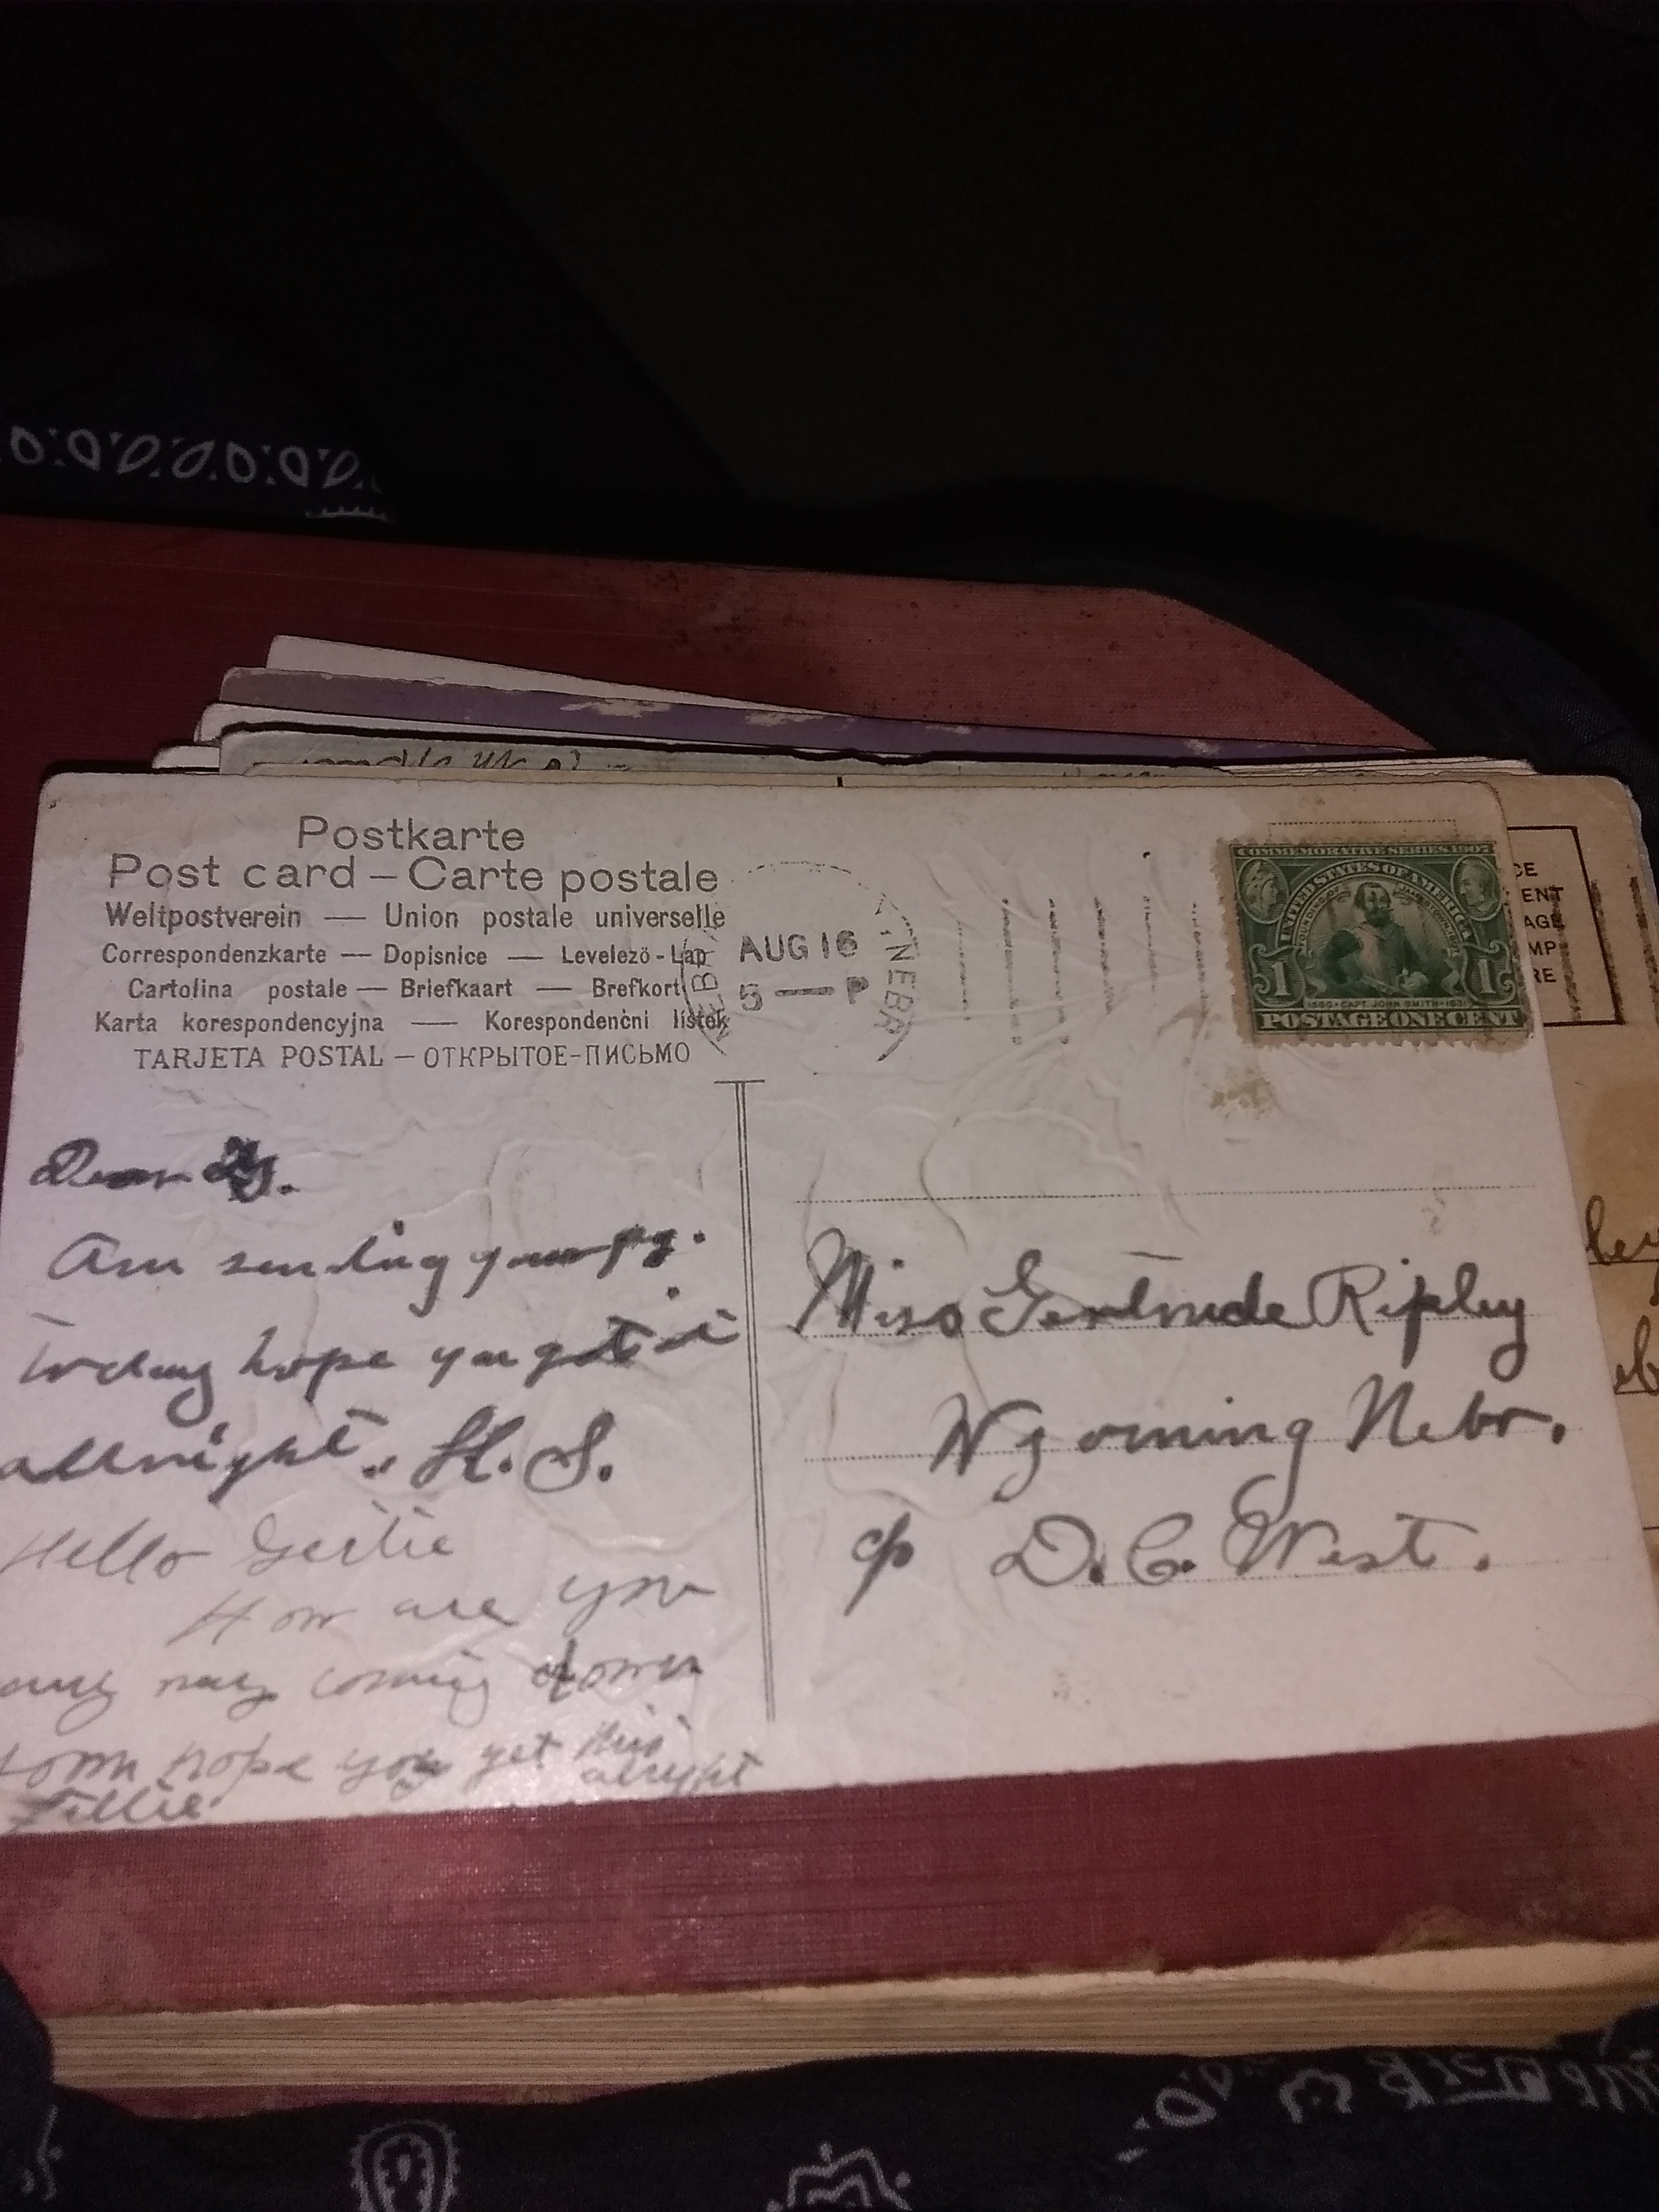 Postkarte
Post card — Carte postale
Weltpostverein — Union postale universelle
Correspondenzkarte — Dopisnice — Levelezö-Lap
Cartolina postale — Briefkaart — Brefkort
Karta korespondencyjna — Korespondenčni listek
TARJETA POSTAL — ОТКРЫТОЕ-ПИСЬМО
AUG 16
5 — P
NEBR
COMMEMORATIVE SERIES 1907
UNITED STATES OF AMERICA
1 1
1580 • CAPT. JOHN SMITH • 1631
POSTAGE ONE CENT
Dear
Am sending you pg.
today hope you get it
allright. H. S.
Hello Gertie
How are you
any way coming down
soon hope you get this
alright
Tillie
Miss Gertrude Ripley
Wyoming Nebr.
D. C. West.